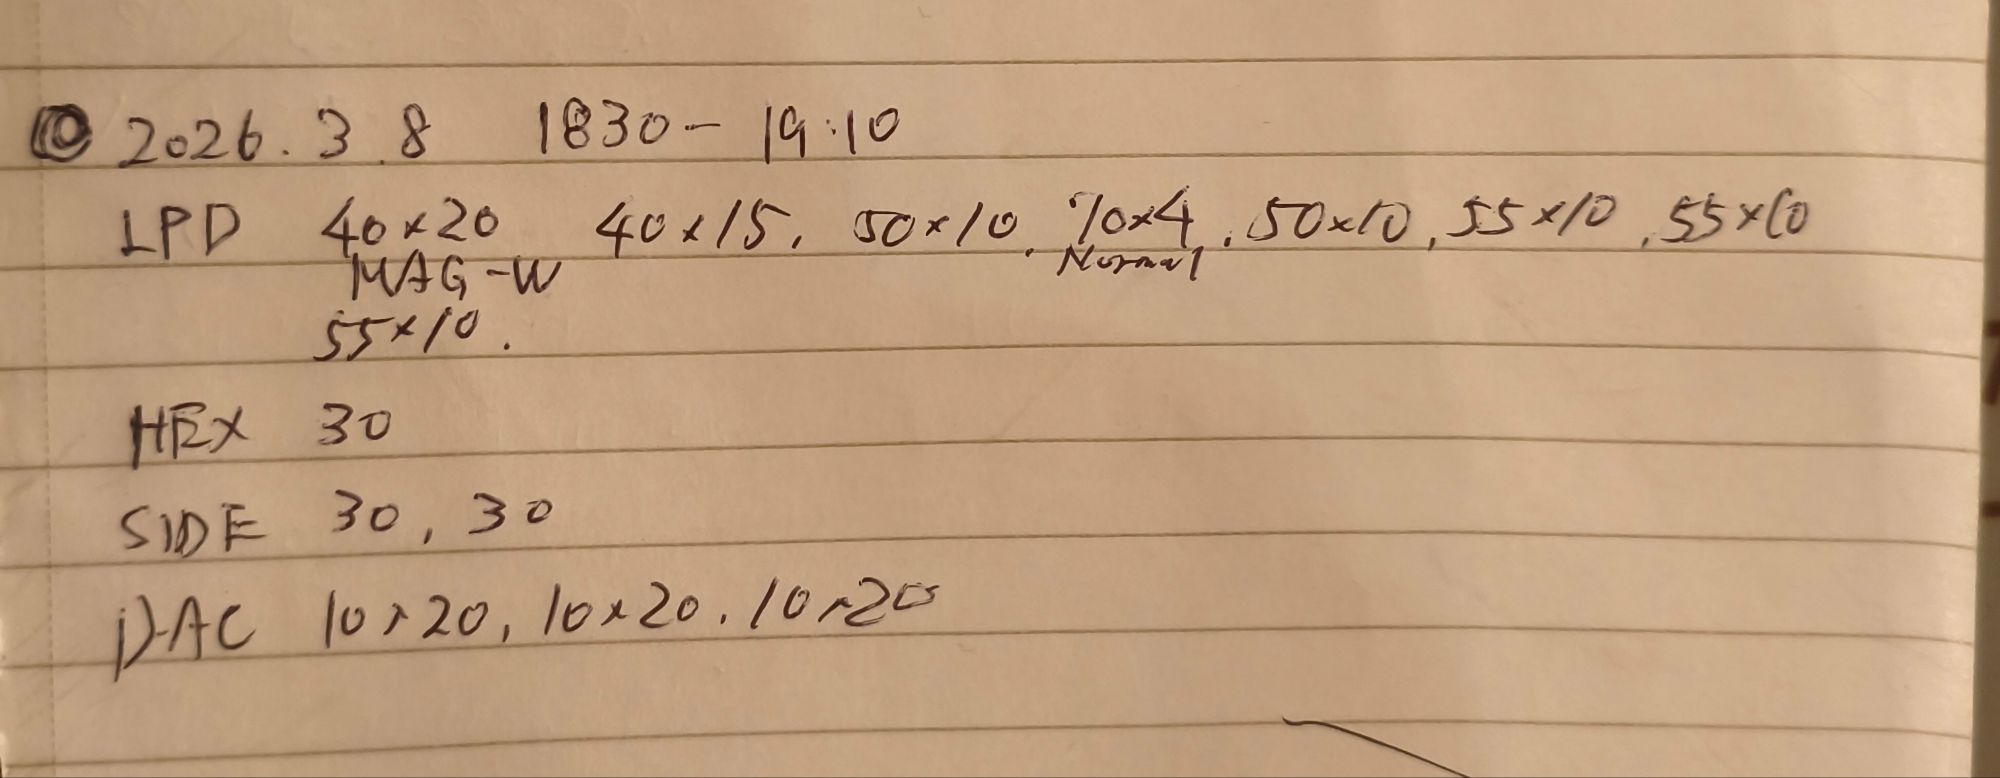 2026.3.8 1830- 19:10
LPD 40x20 40x15, 50x10, 70x4, 50x10, 55x10, 55x10
MAG-W Normal
55x10.
HEX 30
SIDE 30, 30
DAC 10x20, 10x20, 10x20